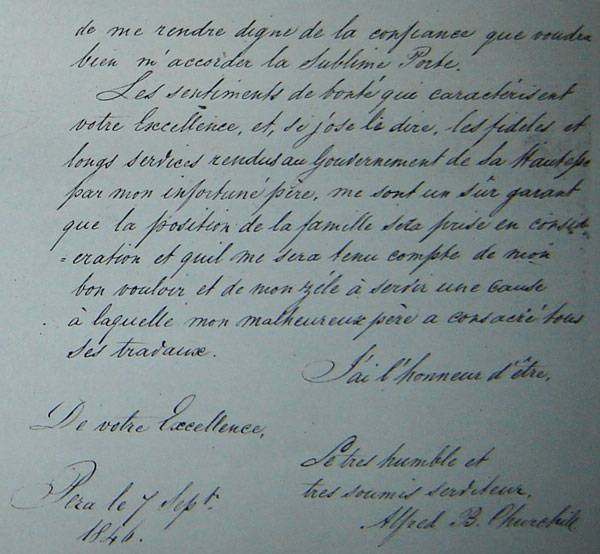 de me rendre digne de la confiance que voudra
bien m'accorder la Sublime Porte.
Les sentiments de bonté que caractérisent
votre Excellence, et, si j'ose le dire, les fideles et
longs services rendus au Gouvernement de Sa Hautesse
par mon infortuné père, me sont un sûr garant
que la position de la famille sera prise en consid-
=eration et quil me sera tenu compte de mon
bon vouloir et de mon zéle à servir une cause
à laquelle mon malheureux père a consacré tous
ses travaux.
J'ai l'honneur d'être,
De votre Excellence,
Le tres humble et
tres soumis serviteur,
Alfred B. Churchill
Pera le 7 Sept.
1846.